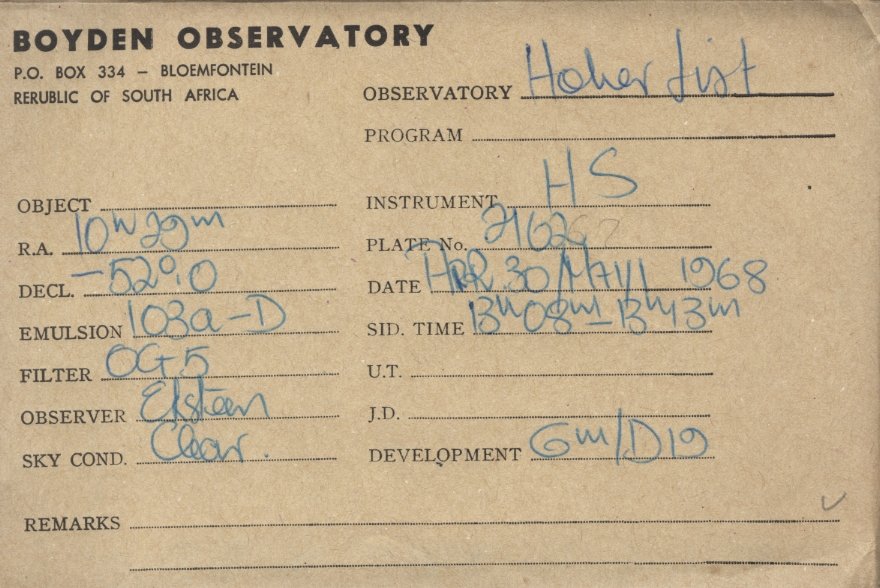 BOYDEN OBSERVATORY
P.O. BOX 334 – BLOEMFONTEIN
RERUBLIC OF SOUTH AFRICA
OBSERVATORY Hoher List
PROGRAM
OBJECT
R.A. 10ʰ 29ᵐ
DECL. –52°,0
EMULSION 103a–D
FILTER OG5
OBSERVER Eksteen
SKY COND. Clear.
INSTRUMENT HS
PLATE No.
DATE APR. 30/MAY 1 1968
SID. TIME 13ʰ08ᵐ–13ʰ13ᵐ
U.T.
J.D.
DEVELOPMENT 6ᵐ/D19
REMARKS